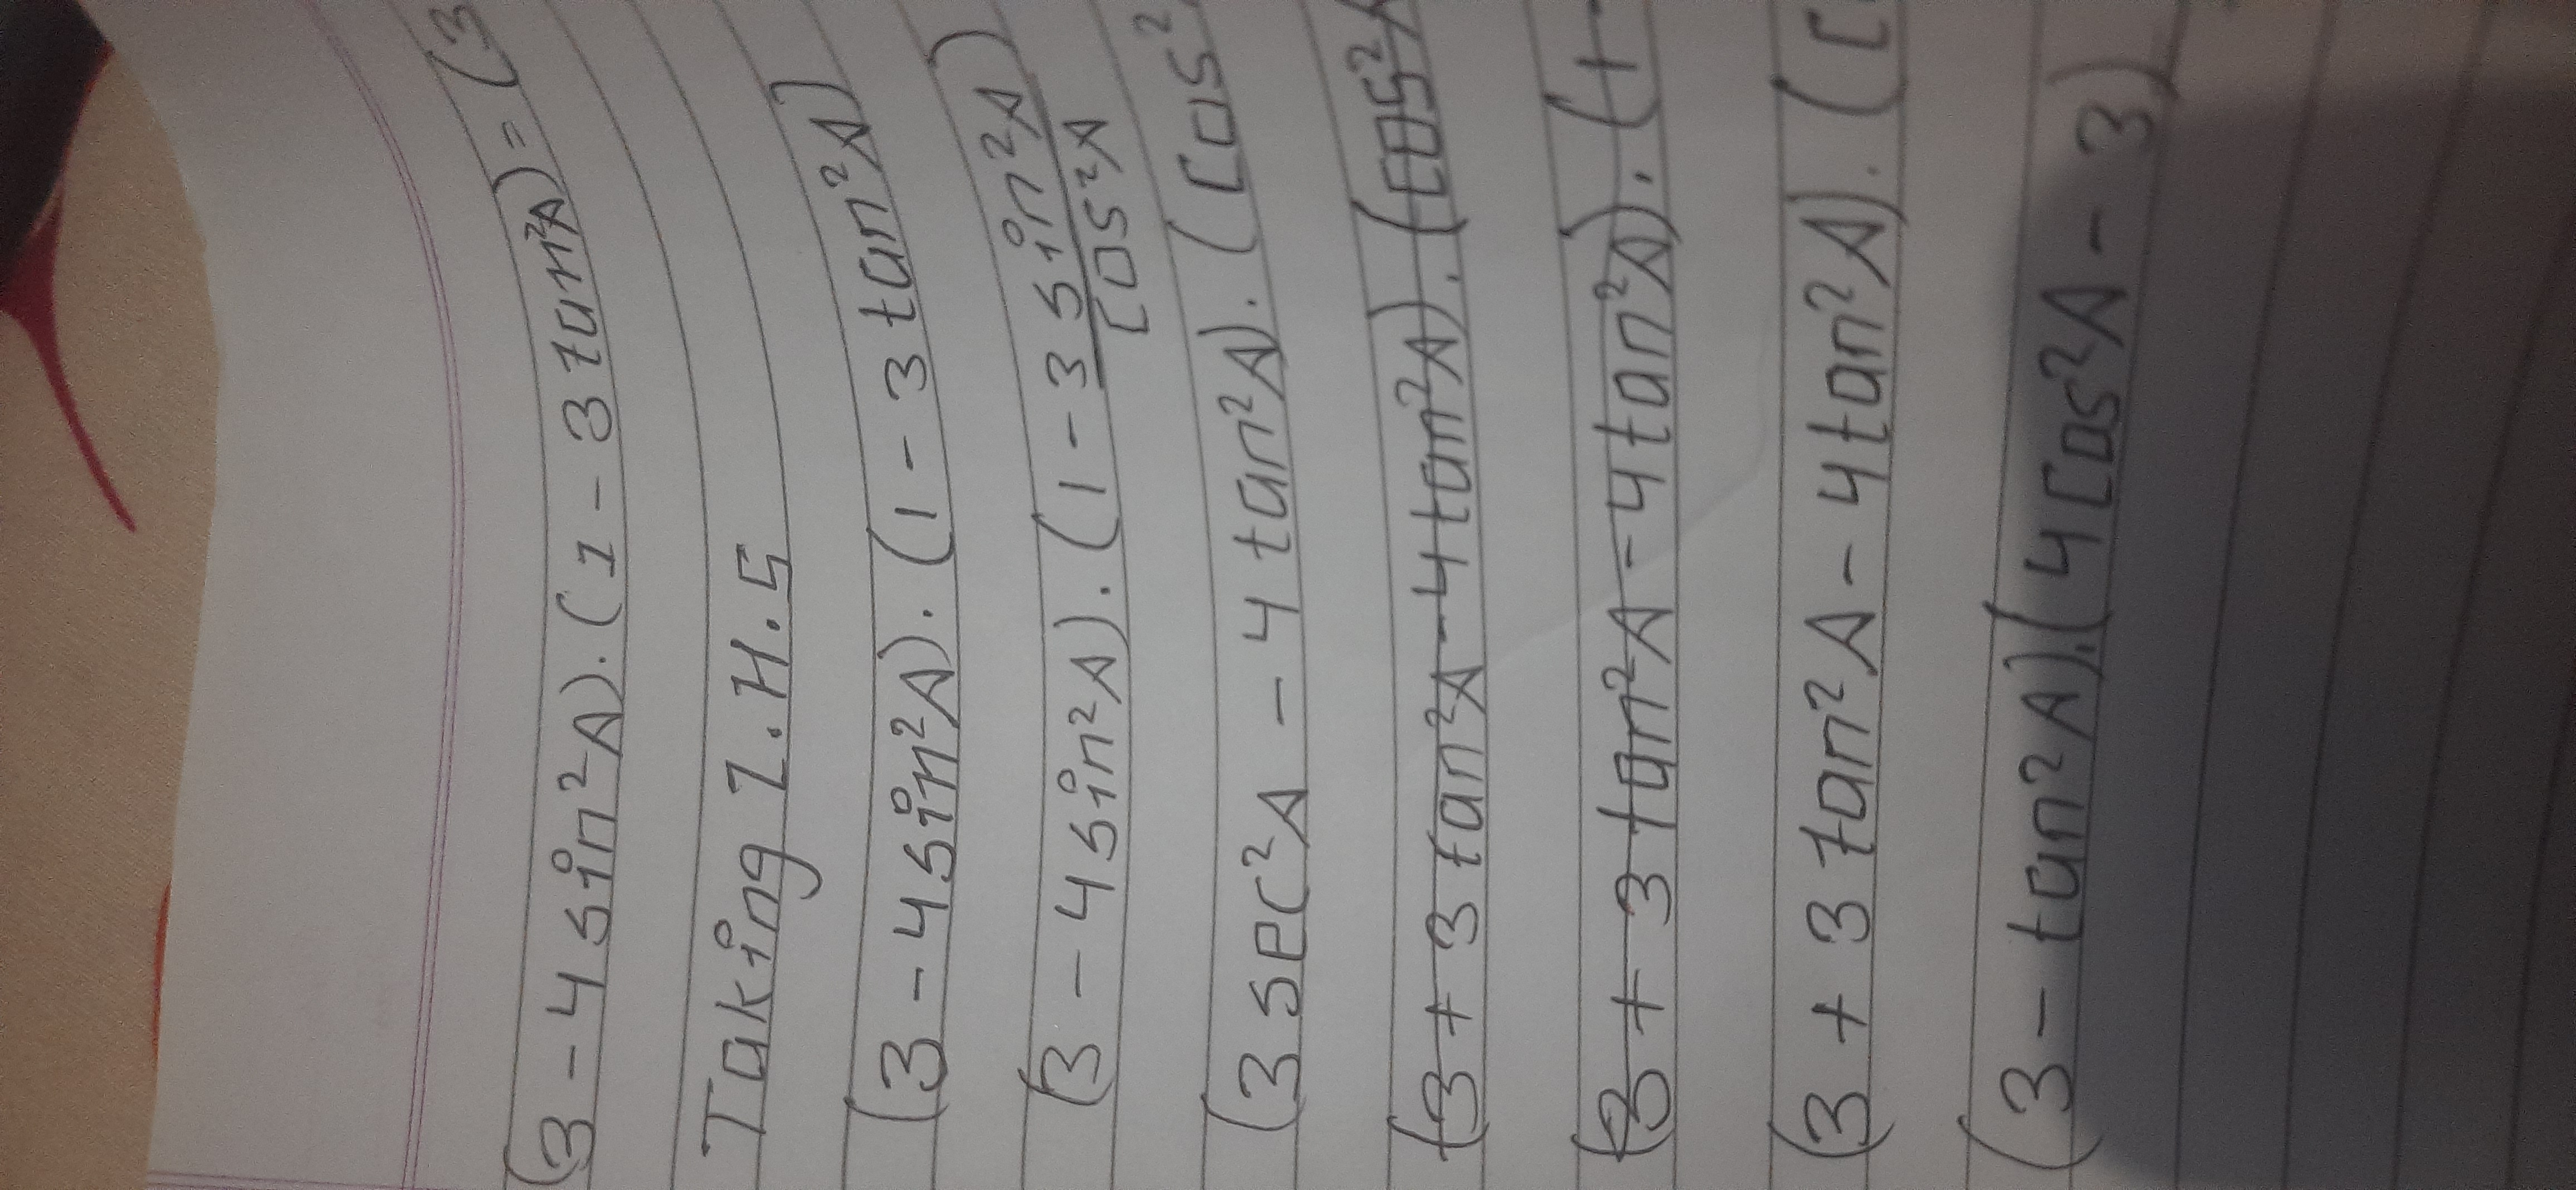 (3 - 4 sin²A).(1 - 3 tan²A) = (3
Taking L.H.S
(3 - 4 sin²A).(1 - 3 tan²A)
(3 - 4 sin²A).(1 - 3 sin²A / cos²A)
(3 sec²A - 4 tan²A).(cos²
(3 + 3 tan²A - 4 tan²A).(cos²A
(3 + 3 tan²A - 4 tan²A).(1 -
(3 + 3 tan²A - 4 tan²A).(c
(3 - tan²A).(4 cos²A - 3)